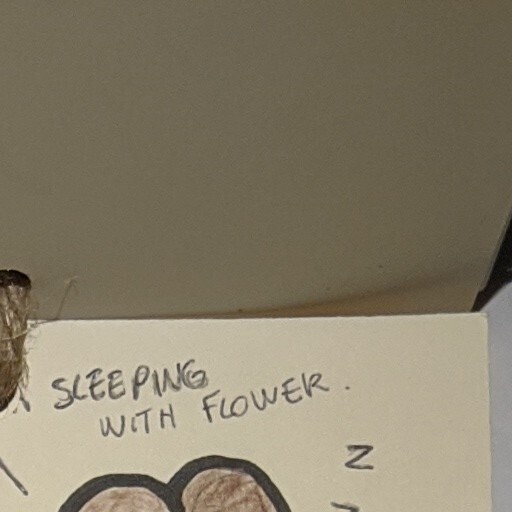 SLEEPING
WITH FLOWER.
Z